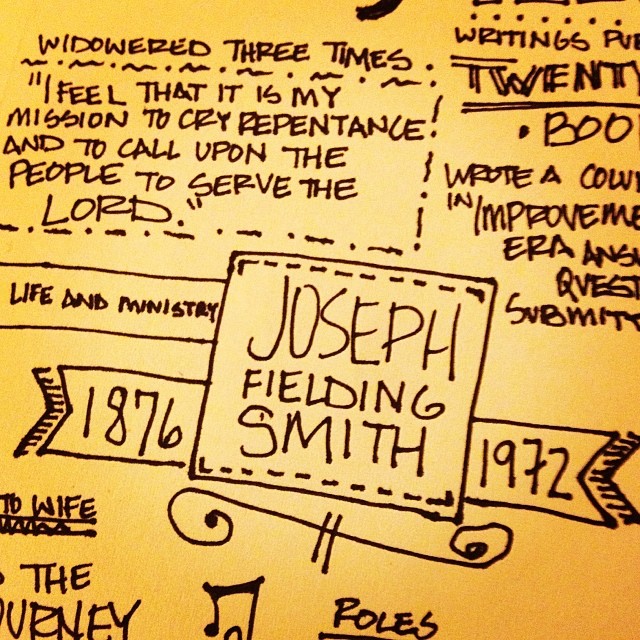 WIDOWERED THREE TIMES.
"I FEEL THAT IT IS MY
MISSION TO CRY REPENTANCE
AND TO CALL UPON THE
PEOPLE TO SERVE THE
LORD."
WRITINGS
TWENTY
• BOO
WROTE A
IN IMPROVEME
ERA ANSW
QUEST
SUBMITT
LIFE AND MINISTRY
JOSEPH
FIELDING
SMITH
1876
1972
TO WIFE
THE
OURNEY
ROLES